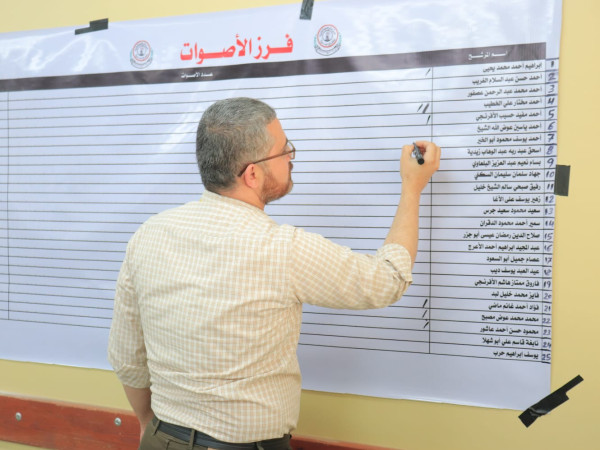 فرز الأصوات
اسم المرشح
عدد الأصوات
ابراهيم أحمد محمد يحيى 1
أحمد حسن عبد السلام الغريب 2
أحمد محمد عبد الرحمن عصفور 3
أحمد مختار علي الخطيب 4
أحمد مفيد حسيب الأفرنجي 5
أحمد ياسين عوض الله الشيخ 6
أحمد يوسف محمود أبو الخير 7
اسحق عبد ربه عبد الوهاب زيدية 8
بسام نعيم عبد العزيز البلعاوي 9
جهاد سلمان سليمان السكني 10
رفيق صبحي سالم الشيخ خليل 11
زهير يوسف علي الأغا 12
سعيد محمود سعيد جرس 13
سمير أحمد محمود الدقران 14
صلاح الدين رمضان عيسى أبو جزر 15
عبد المجيد ابراهيم أحمد الأعرج 16
عصام جميل أبو السعود 17
عبد العبد يوسف ديب 18
فاروق ممتاز هاشم الأفرنجي 19
فايز محمد خليل لبد 20
فؤاد أحمد غانم ماضي 21
محمد محمد عوض مصبح 22
محمود حسن أحمد عاشور 23
نابغة قاسم علي أبو شهلا 24
يوسف ابراهيم حرب 25